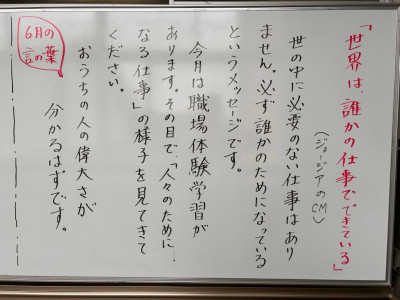 「世界は、誰かの仕事でできている」
(ジョージアのCM)
世の中に必要のない仕事はあり
ません。必ず誰かのためになっている
というメッセージです。
今月は職場体験学習が
あります。その目で、「人々のために
なる仕事」の様子を見てきて
ください。
おうちの人の偉大さが
分かるはずです。
6月の
言の葉